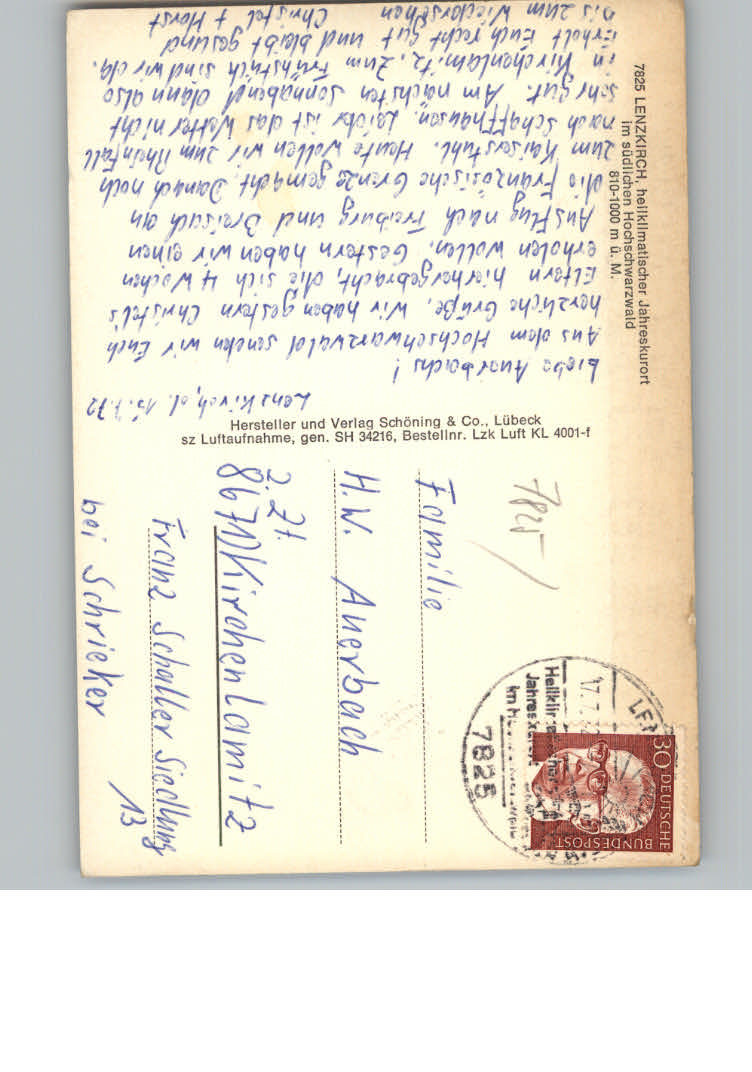 7825 LENZKIRCH, heilklimatischer Jahreskurort
im südlichen Hochschwarzwald
810-1000 m ü. M.
Lenzkirch, d. 15.7.72
Liebe Auerbachs!
Aus dem Hochschwarzwald senden wir Euch
herzliche Grüße. Wir haben gestern Christel's
Eltern hierhergebracht, die sich 4 Wochen
erholen wollen. Gestern haben wir einen
Ausflug nach Freiburg und Breisach an
die Französische Grenze gemacht. Danach noch
zum Kaiserstuhl. Heute wollen wir zum Rheinfall
nach Schaffhausen. Leider ist das Wetter nicht
sehr gut. Am nächsten Sonnabend dann also
in Kirchenlamitz. Zum Frühstück sind wir da.
Erholt Euch recht gut und bleibt gesund
bis zum Wiedersehen Christel + Horst
Hersteller und Verlag Schöning & Co., Lübeck
sz Luftaufnahme, gen. SH 34216, Bestellnr. Lzk Luft KL 4001-f
7825
Familie
H.W. Auerbach
z. Zt.
8671 Kirchenlamitz
Franz Scheller Siedlung
13
bei Schrieker
17.7.
Jahreskurort
7825
30 DEUTSCHE
BUNDESPOST